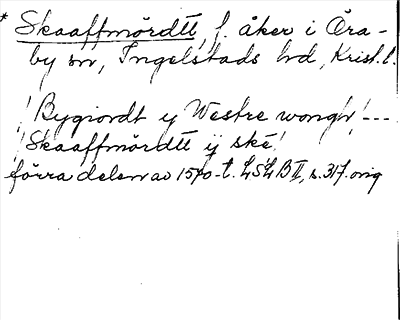 * Skaaffmördtt, f. åker i Öra-
by sn, Ingelstads hd, Krist. l.
! Bygiordt y Westre wongh! ---
! Skaaffmördtt ij ské!
förra delen av 1570-t. LSLB II, s. 317. orig